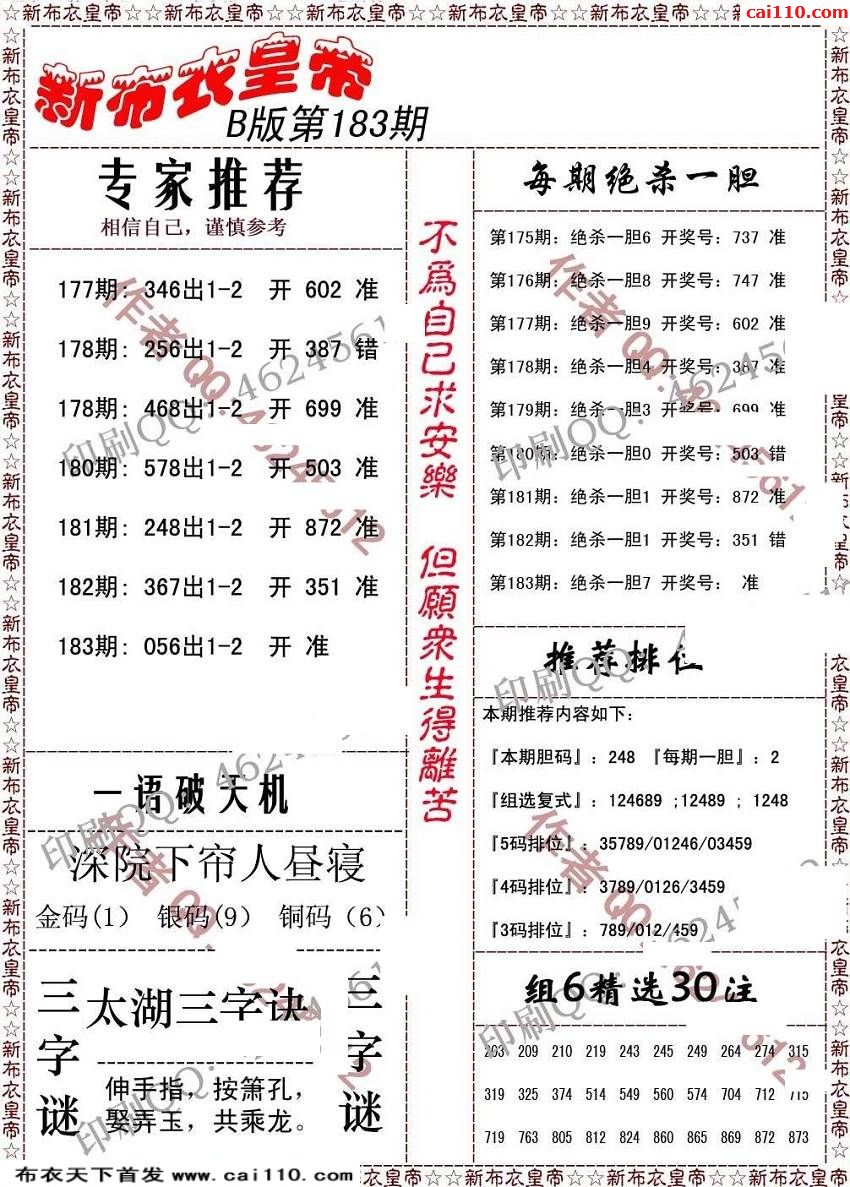 ☆☆新布衣皇帝☆☆新布衣皇帝☆☆新布衣皇帝☆☆新布衣皇帝☆☆新布衣皇帝☆☆新布衣皇帝☆☆
cai110.com
新布衣皇帝
B版第183期
专家推荐
相信自己，谨慎参考
177期: 346出1-2 开 602 准
178期: 256出1-2 开 387 错
178期: 468出1-2 开 699 准
180期: 578出1-2 开 503 准
181期: 248出1-2 开 872 准
182期: 367出1-2 开 351 准
183期: 056出1-2 开 准
一语破天机
深院下帘人昼寝
金码(1) 银码(9) 铜码（6）
三字谜
太湖三字诀
伸手指，按箫孔，
娶弄玉，共乘龙。
三字谜
不爲自己求安樂 但願眾生得離苦
每期绝杀一胆
第175期: 绝杀一胆6 开奖号: 737 准
第176期: 绝杀一胆8 开奖号: 747 准
第177期: 绝杀一胆9 开奖号: 602 准
第178期: 绝杀一胆4 开奖号: 387 准
第179期: 绝杀一胆3 开奖号: 699 准
第180期: 绝杀一胆0 开奖号: 503 错
第181期: 绝杀一胆1 开奖号: 872 准
第182期: 绝杀一胆1 开奖号: 351 错
第183期: 绝杀一胆7 开奖号: 准
推荐排位
本期推荐内容如下:
『本期胆码』: 248 『每期一胆』: 2
『组选复式』: 124689 ;12489 ; 1248
『5码排位』: 35789/01246/03459
『4码排位』: 3789/0126/3459
『3码排位』: 789/012/459
组6精选30注
203 209 210 219 243 245 249 264 274 315
319 325 374 514 549 560 574 704 712 715
719 763 805 812 824 860 865 869 872 873
布衣天下首发 www.cai110.com
衣皇帝☆☆新布衣皇帝☆☆新布衣皇帝☆☆新布衣皇帝☆☆